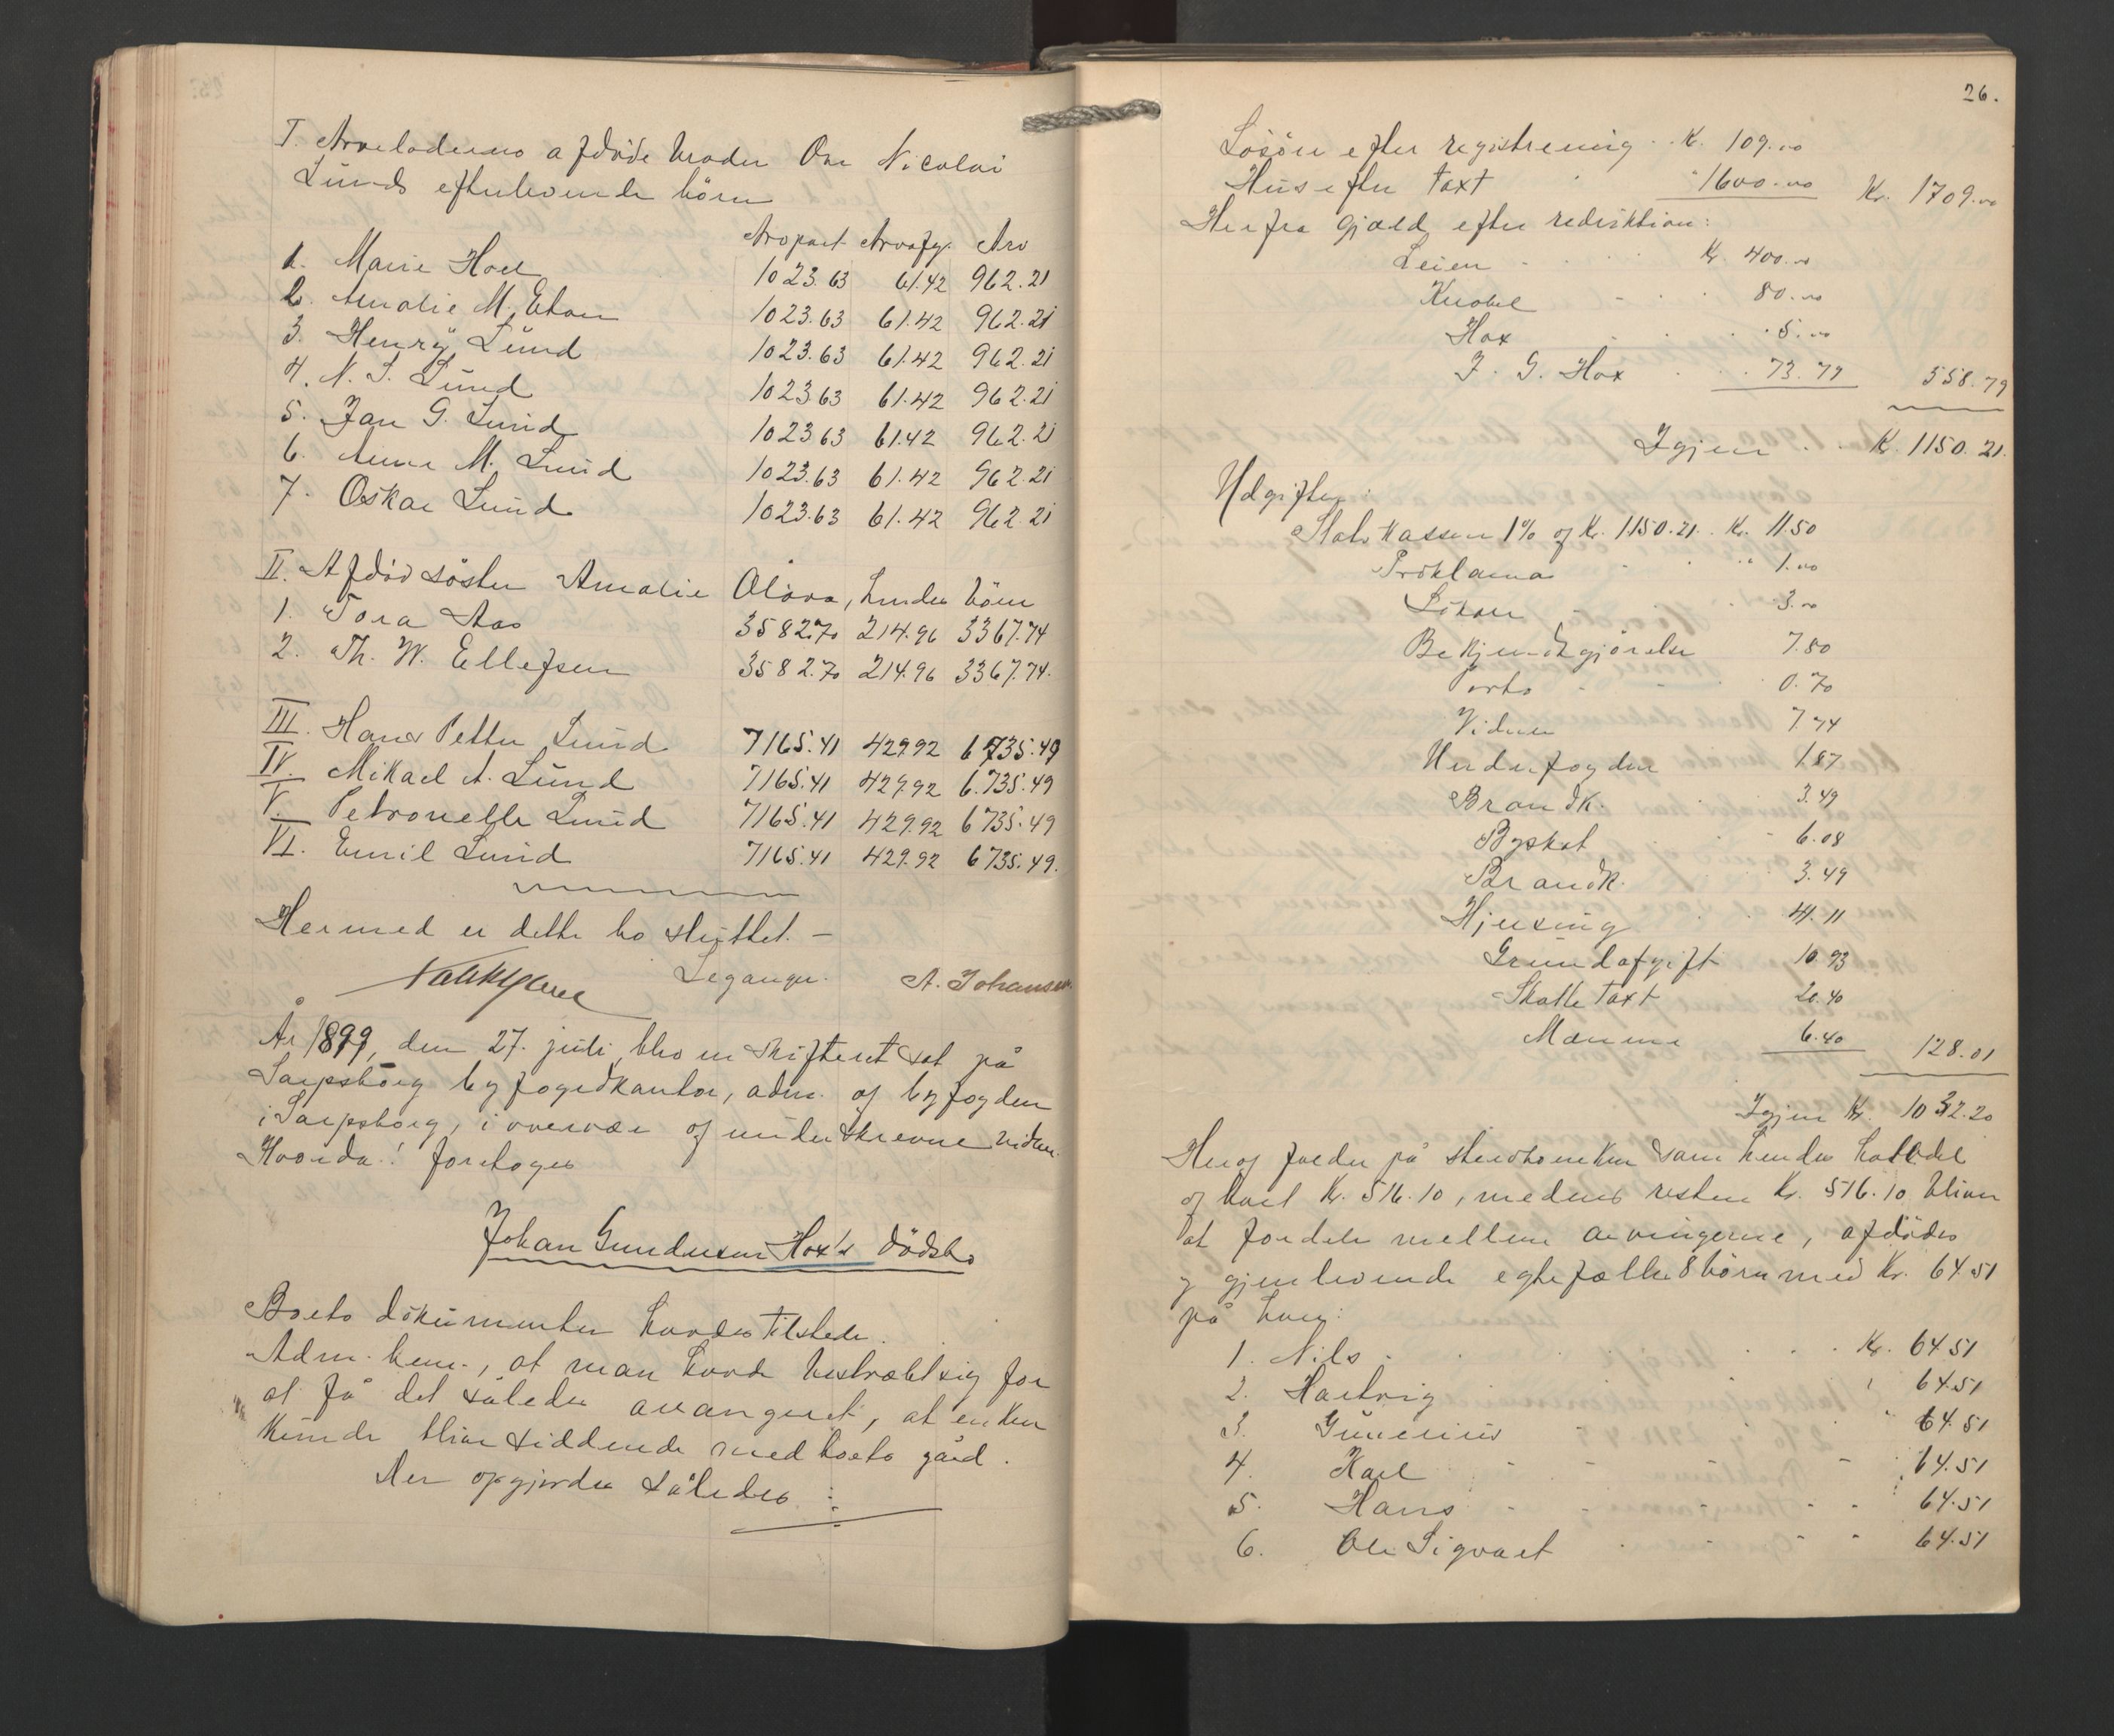 I. Arveladerens afdøde broder Ove Nicolai
Lunds efterlevende börn
Arvpart Arvafg. Arv
1. Marie Hoel 1023.63 61.42 962.21
2. Amalie M. 1023.63 61.42 962.21
3. Henry Lund 1023.63 61.42 962.21
4. N. S. Lund 1023.63 61.42 962.21
5. Jan G. Lund 1023.63 61.42 962.21
6. Anna M. Lund 1023.63 61.42 962.21
7. Oskar Lund 1023.63 61.42 962.21
II. Afdød söster Amalie Olava, hendes börn
1. Tora Aas 3582.70 214.96 3367.74
2. Th. W. Ellefsen 3582.70 214.96 3367.74.
III. Hans Petter Lund 7165.41 429.92 6735.49
IV. Mikael A. Lund 7165.41 429.92 6.735.49
V. Petronelle Lund 7165.41 429.92 6735.49
VI. Emil Lund 7165.41 429.92 6735.49.
Hermed er dette bo sluttet. –
Leganger. A. Johansen
År 1899, den 27. juli blev en skifteret sat på
Sarpsborg byfogedkontor, adm. af byfogden
i Sarpsborg, i overvær af underskrevne vidner.
Hvorda! foretoges
Johan Gundersen Hox's dödsbo
Boets dokumenter havdes tilstede.
Adm. bem., at man havde bestræbt sig for
at få det således arrangeret, at enken
kunde blive siddende med boets gård.
Der opgjordes således:
26.
Lösöre efter registrering .. K. 109.00
Hus efter taxt " 1600.00 Kr. 1709.00
Herfra gjæld efter reduktion:
Leien Kr. 400.00
Knobel 80.00
Hox 5.00
J. G. Hox 73.79 558.79
Igjen K. 1150.21.
Udgifter:
Statskassen 1% af Kr. 1150.21. Kr. 11.50
Proklama 1.00
3.00
Bekjendtgjörelse 7.80
Porto 0.70
Vidner 7.74
Underfogden 1.87
Brandk. 3.49
Byskat 6.08
Brandk. 3.49
41.11
Grundafgift 10.93
Skattetaxt 20.40
6.40 128.01
Igjen Kr. 1032.20
Heraf falder på stervboenken som hendes halvdel
af boet Kr. 516.10, medens resten Kr. 516.10 bliver
at fordele mellem arvingerne, afdödes
og gjenlevende egtefælles 8 börn med Kr. 64.51
på hver:
1. Nils Kr. 64.51
2. Hartvig " 64.51
3. Gunerius " 64.51
4. Karl " 64.51
5. Hans - - - - 64.51
6. Ole Sigvart - - 64.51